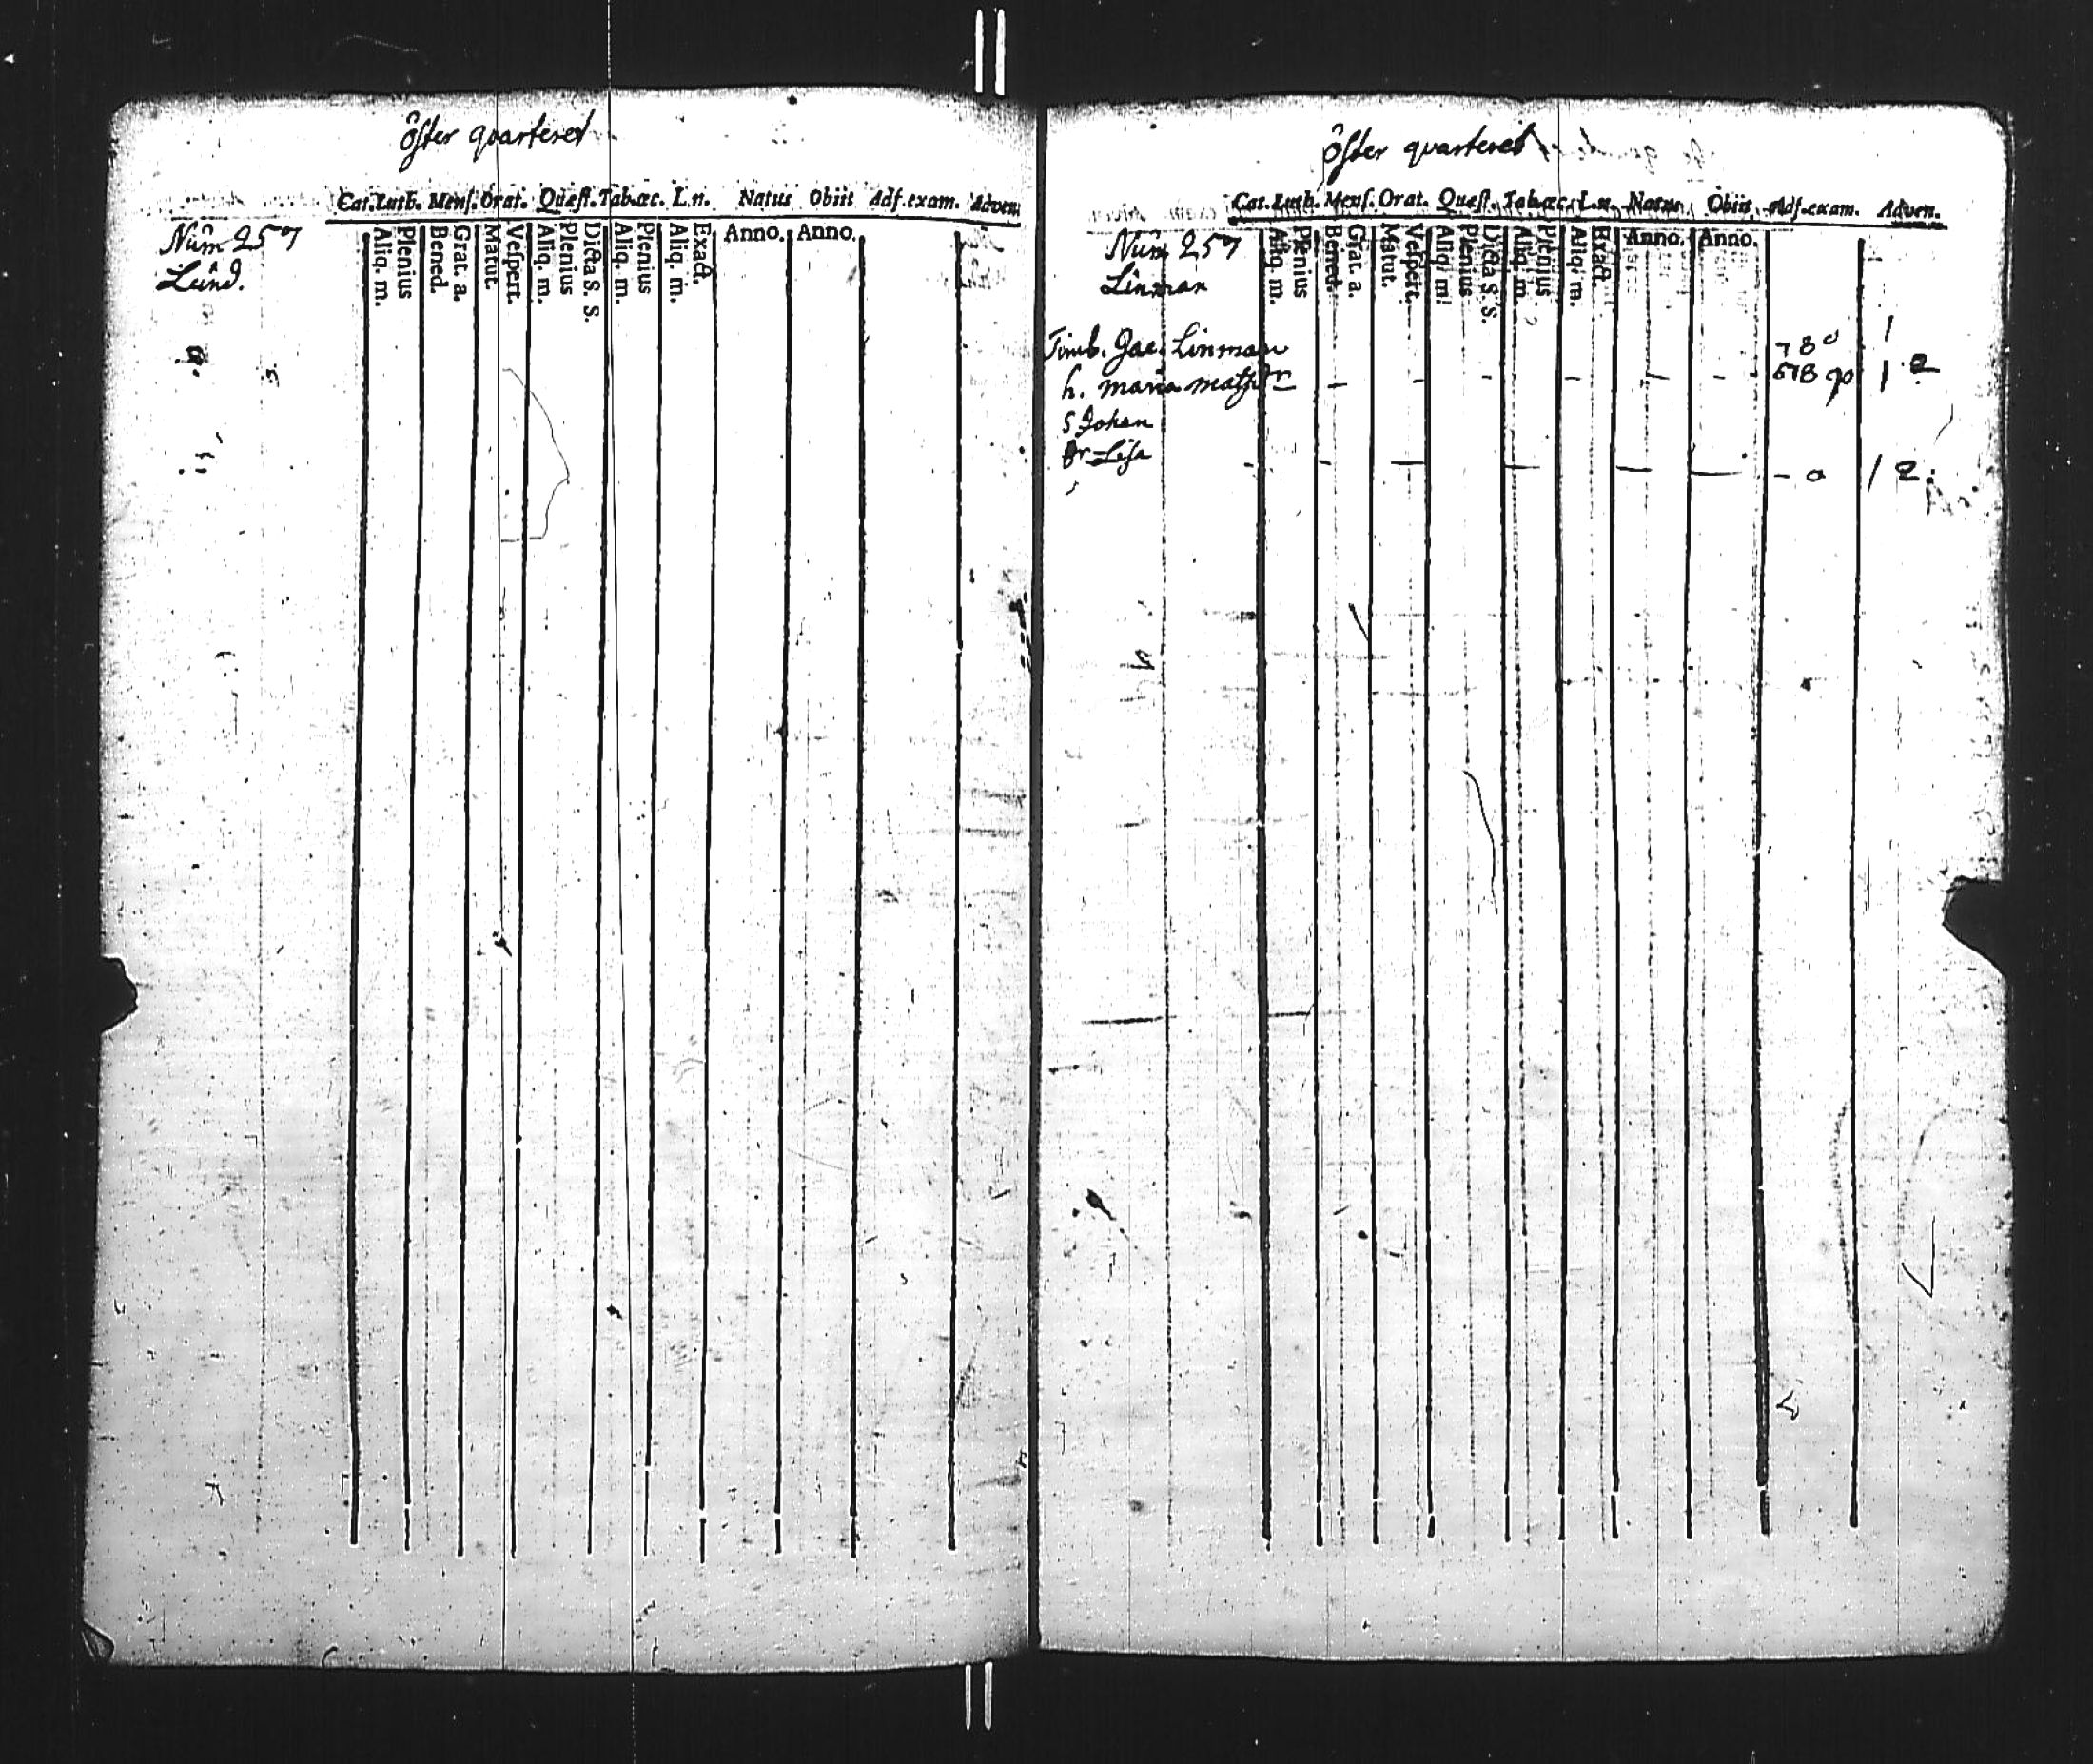 öster quarteret
Cat. Luth. Mens. Orat. Quæst. Tab. œc. L. n. Natus Obiit Adf. exam. Adven.
Aliq. m. Plenius Bened. Grat. a. Matut. Vespert. Aliq. m. Plenius Dicta S. S. Aliq. m. Plenius Aliq. m. Exact. Anno. Anno.
Num 257
Lund.
öster quarteret
Cat. Luth. Mens. Orat. Quæst. Tab. œc. L. n. Natus Obiit Adf. exam. Adven.
Aliq. m. Plenius Bened. Grat. a. Matut. Vespert. Aliq. m. Plenius Dicta S. S. Aliq. m. Plenius Aliq. m. Exact. Anno. Anno.
Num 257
Linman
Timb. Jac. Linman 780 1
h. maria 678 1 2
s Johan
Lisa 1 2